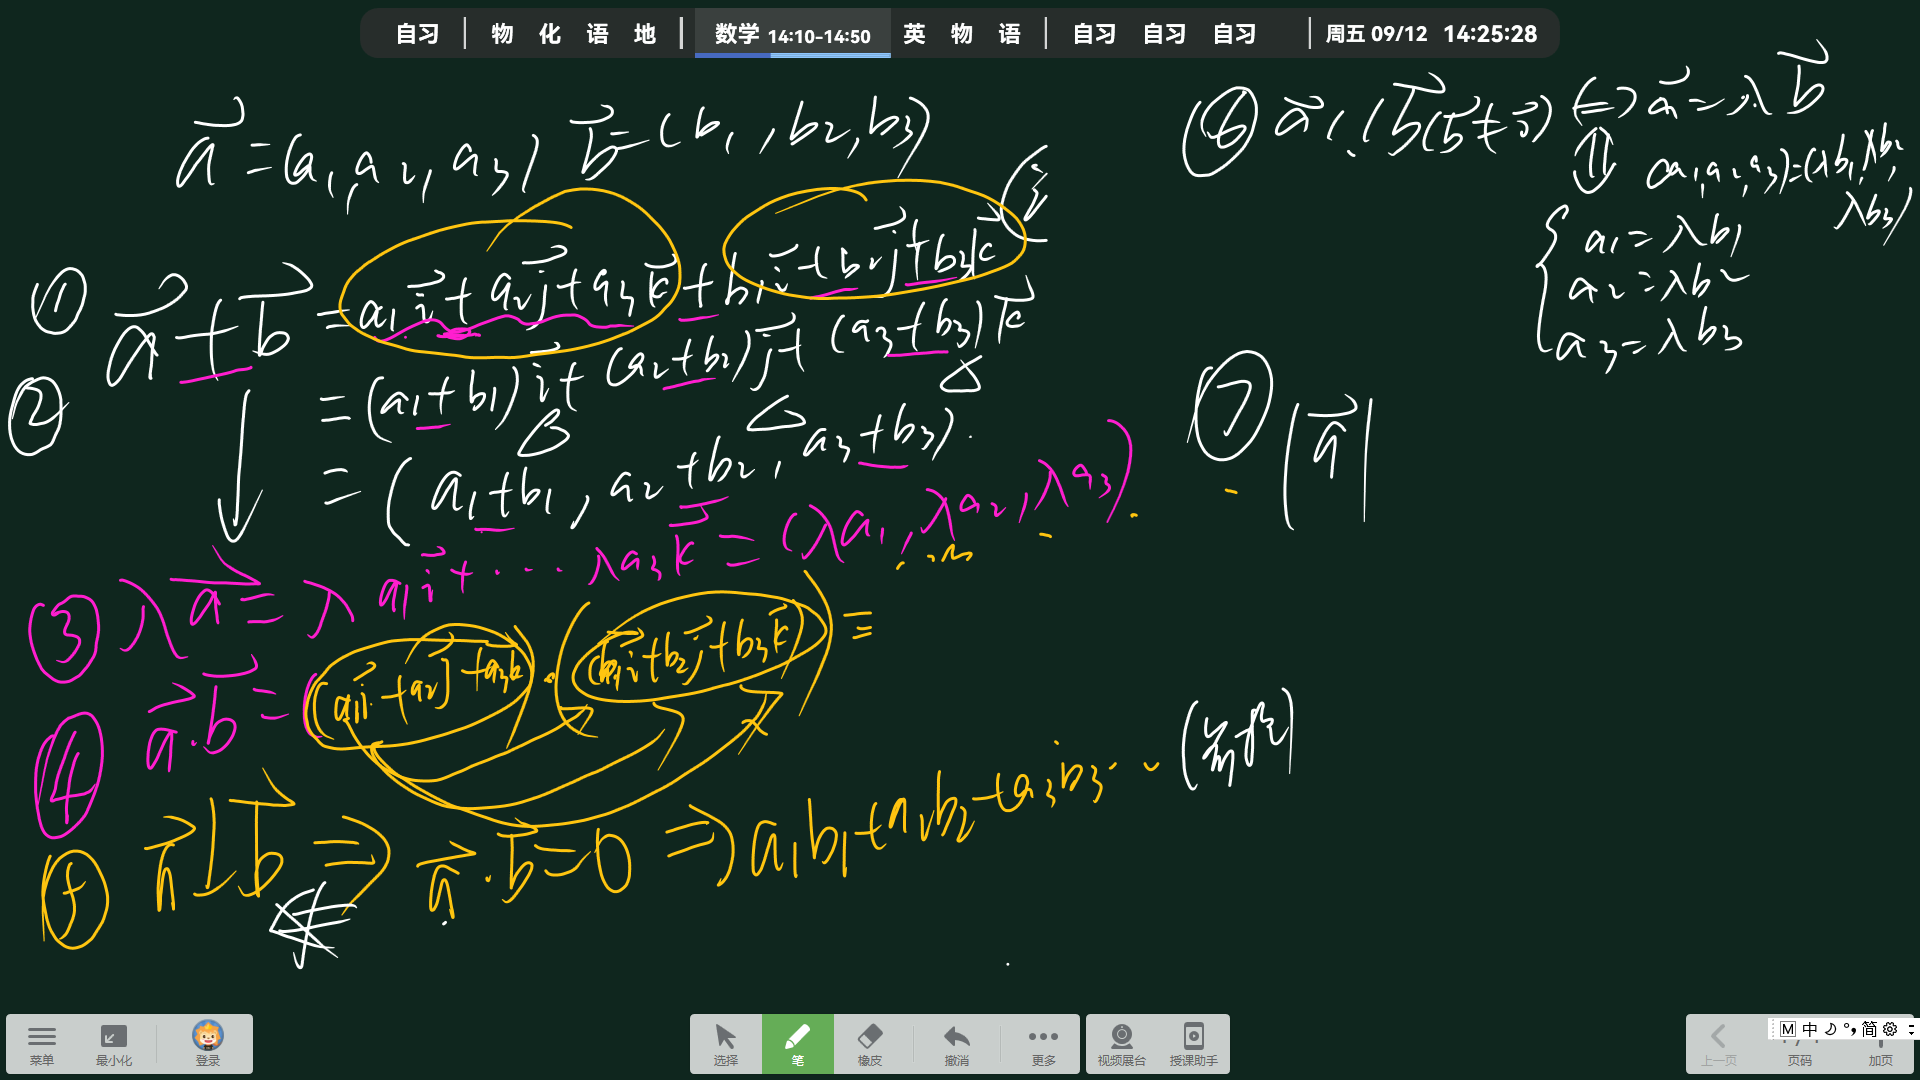 自习 | 物 化 语 地 | 数学 14:10-14:50 英 物 语 | 自习 自习 自习 | 周五 09/12 14:25:28
a⃗=(a₁,a₂,a₃) b⃗=(b₁,b₂,b₃)
① a⃗+b⃗=a₁i⃗+a₂j⃗+a₃k⃗+b₁i⃗+b₂j⃗+b₃k⃗
② =(a₁+b₁)i⃗+(a₂+b₂)j⃗+(a₃+b₃)k⃗
=(a₁+b₁,a₂+b₂,a₃+b₃).
③ λa⃗=λa₁i⃗+⋯λa₃k⃗=(λa₁,λa₂,λa₃)
④ a⃗·b⃗=(a₁i⃗+a₂j⃗+a₃k⃗)·(b₁i⃗+b₂j⃗+b₃k⃗)=
⑤ a⃗⊥b⃗⇒a⃗·b⃗=0⇒a₁b₁+a₂b₂+a₃b₃
⑥ a⃗//b⃗(b⃗≠0⃗)⇔a⃗=λb⃗
⇕ (a₁,a₂,a₃)=(λb₁,λb₂,
λb₃)
a₁=λb₁
a₂=λb₂
a₃=λb₃
⑦ |a⃗|
菜单 最小化 登录 选择 笔 橡皮 撤消 更多 视频展台 授课助手 上一页 页码 加页
M 中 简